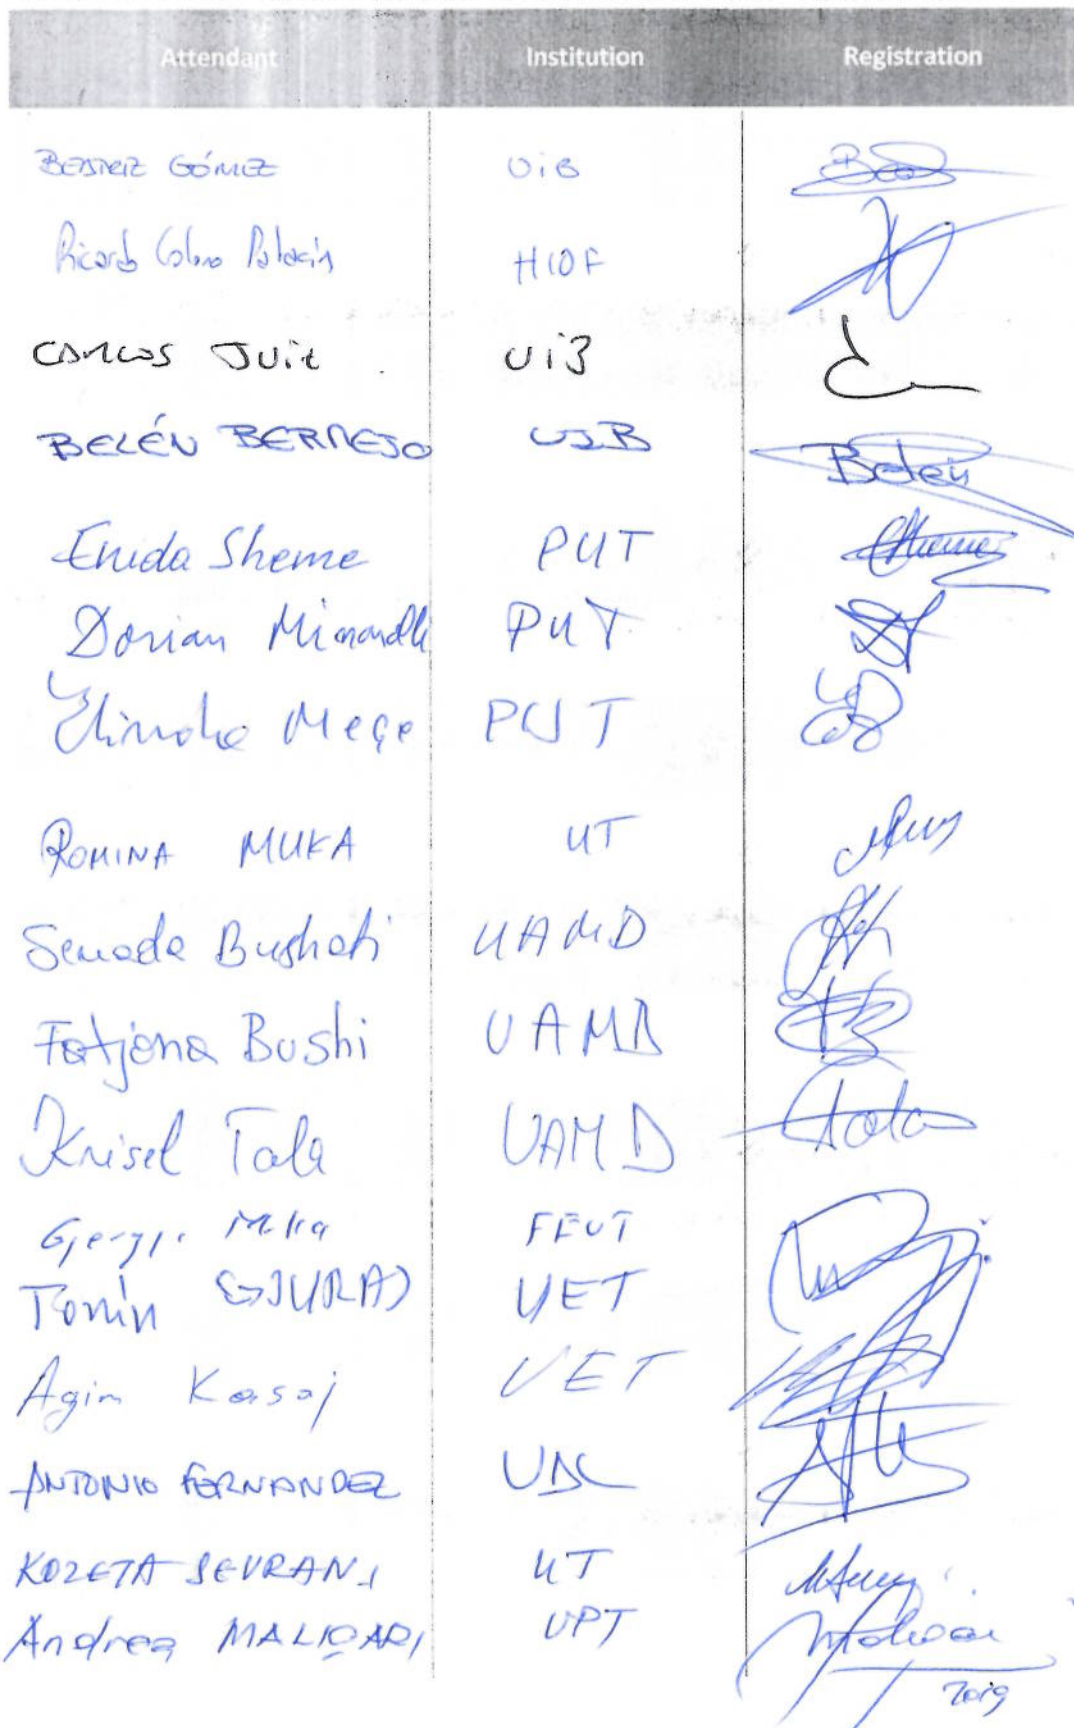 Attendant Institution Registration
BEATRIZ GÓMEZ UiB
Ricardo Colomo Palacios HIOF
CARLOS JUIZ UiB
BELÉN BERMEJO UIB Belén
Enida Sheme PUT Sheme
Dorian Minarolli PUT
Elinda Meçe PUT
ROMINA MUKA UT
Senada Bushati UAMD
Fatjona Bushi UAMD
Krisel Tola UAMD Tola
Gjergji Mulla FEUT
Tonin GJURAJ UET
Agim Kasaj UET
ANTONIO FERNANDEZ UDC
KOZETA SEVRANI UT
Andrea MALIQARI UPT
2019